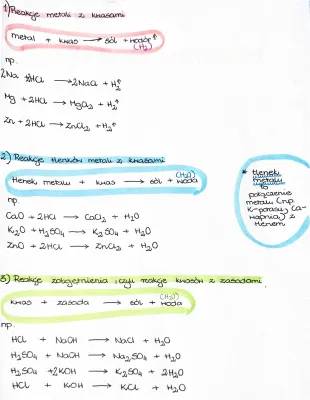 1) Reakcje metali z kwasami
metal + kwas → sól + wodór↑
(H₂)
np.
2Na + 2HCl → 2NaCl + H₂↑
Mg + 2HCl → MgCl₂ + H₂↑
Zn + 2HCl → ZnCl₂ + H₂↑
2) Reakcje tlenków metali z kwasami
(H₂O)
tlenek metalu + kwas → sól + woda
np.
CaO + 2HCl → CaCl₂ + H₂O
K₂O + H₂SO₄ → K₂SO₄ + H₂O
ZnO + 2HCl → ZnCl₂ + H₂O
* tlenek
metalu
to
połączenie
metalu (np.
K-potasu, Ca-
wapnia) z
tlenem
3) Reakcje zobojętnienia, czyli reakcje kwasów z zasadami
(H₂O)
kwas + zasada → sól + woda
np.
HCl + NaOH → NaCl + H₂O
H₂SO₄ + NaOH → Na₂SO₄ + H₂O
H₂SO₄ + 2KOH → K₂SO₄ + 2H₂O
HCl + KOH → KCl + H₂O